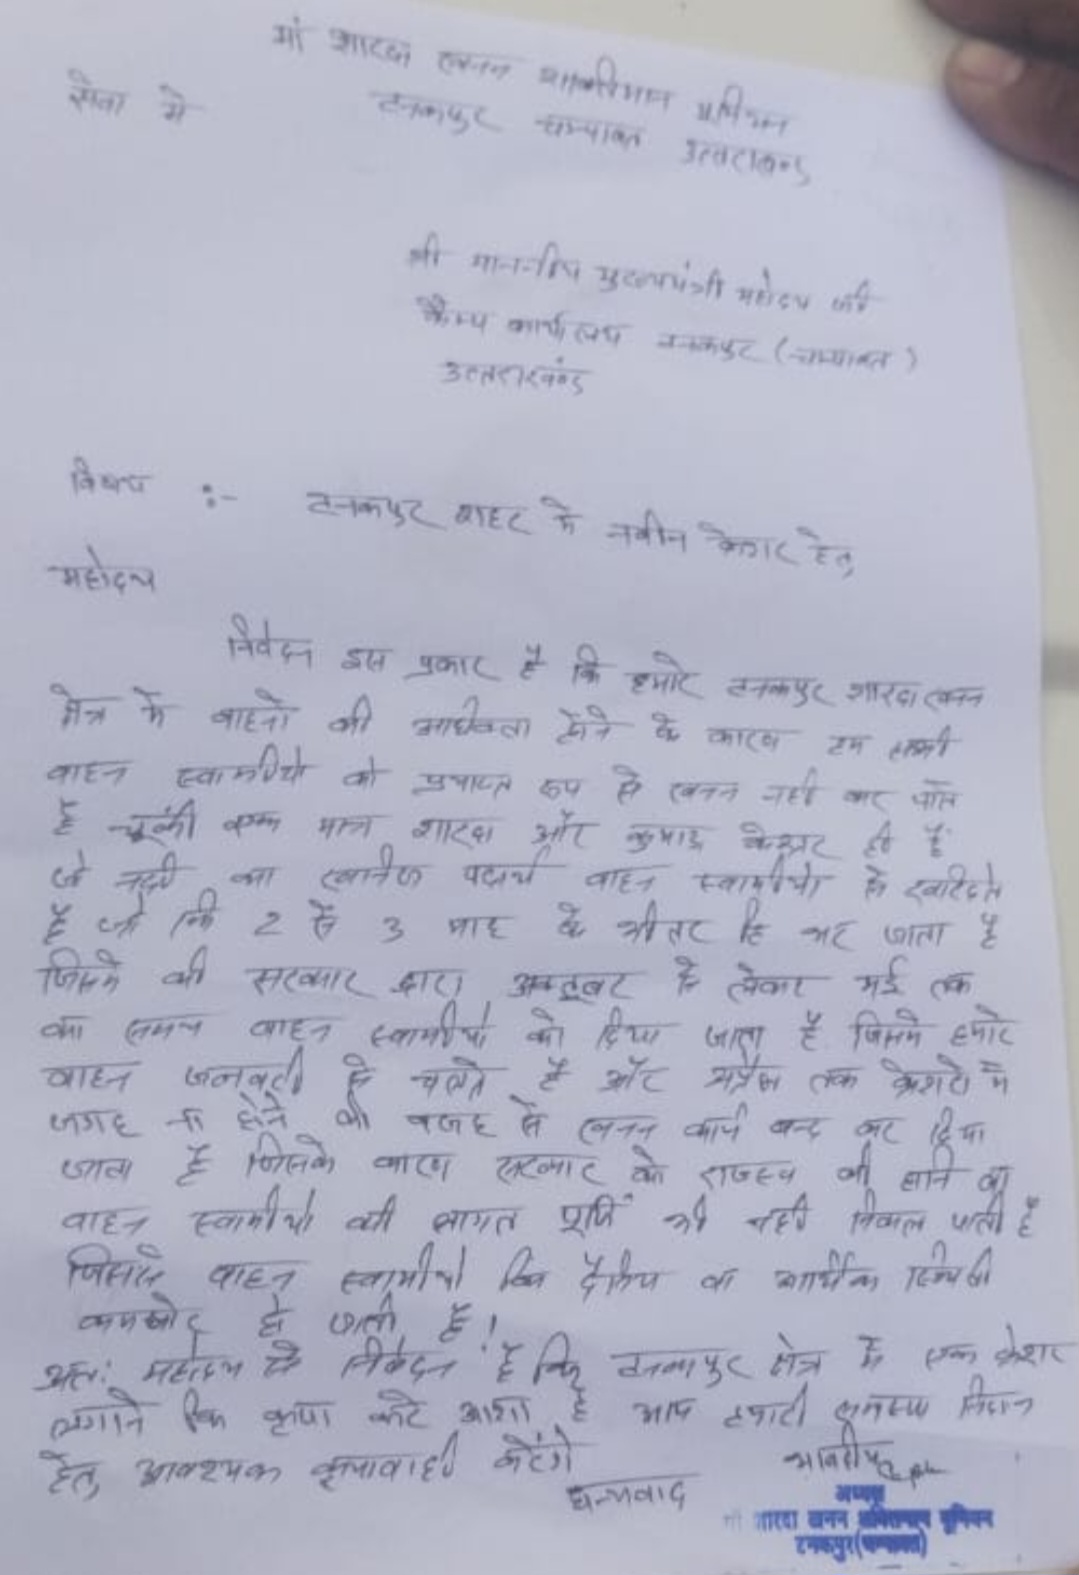 मां शारदा खनन शक्तिमान यूनियन
सेवा मे
टनकपुर चम्पावत उत्तराखण्ड
श्री माननीय मुख्यमंत्री महोदय जी
कैम्प कार्यालय टनकपुर (चम्पावत)
उत्तराखंड
विषय :- टनकपुर शहर मे नवीन केशर हेतु
महोदय
निवेदन इस प्रकार है कि हमारे टनकपुर शारदा खनन
क्षेत्र मे वाहनो की अधिकता होने के कारण हम सभी
वाहन स्वामीयो को प्रयाप्त रूप से खनन नही कर पाते
है चूंकी एक मात्र शारदा और केशर ही है
जो नदी का खनिज पदार्थ वाहन स्वामीयो से खरिदते
है जो कि 2 से 3 माह के भीतर हि भर जाता है
जिसमे की सरकार द्वारा अक्टूबर से लेकर मई तक
का समय वाहन स्वामीयो को दिया जाता है जिसमे हमारे
वाहन जनवरी से चलते है और अप्रैल तक केशरो मे
जगह ना होने की वजह से खनन कार्य बन्द कर दिया
जाता है जिसके कारण सरकार को राजस्व की हानि वा
वाहन स्वामीयो की लागत पूर्ति भी नही निकल पाती है
जिससे वाहन स्वामीयो कि दैनिय वा आर्थिक स्थिती
कमजोर हो जाती है।
अतः महोदय से निवेदन है कि टनकपुर क्षेत्र मे एक केशर
लगाने कि कृपा करे आशा है आप हमारी समस्या निदान
हेतु आवश्यक कृयावाही करेंगे
धन्यवाद
भवदीय
अध्यक्ष
मां शारदा खनन शक्तिमान यूनियन
टनकपुर(चम्पावत)